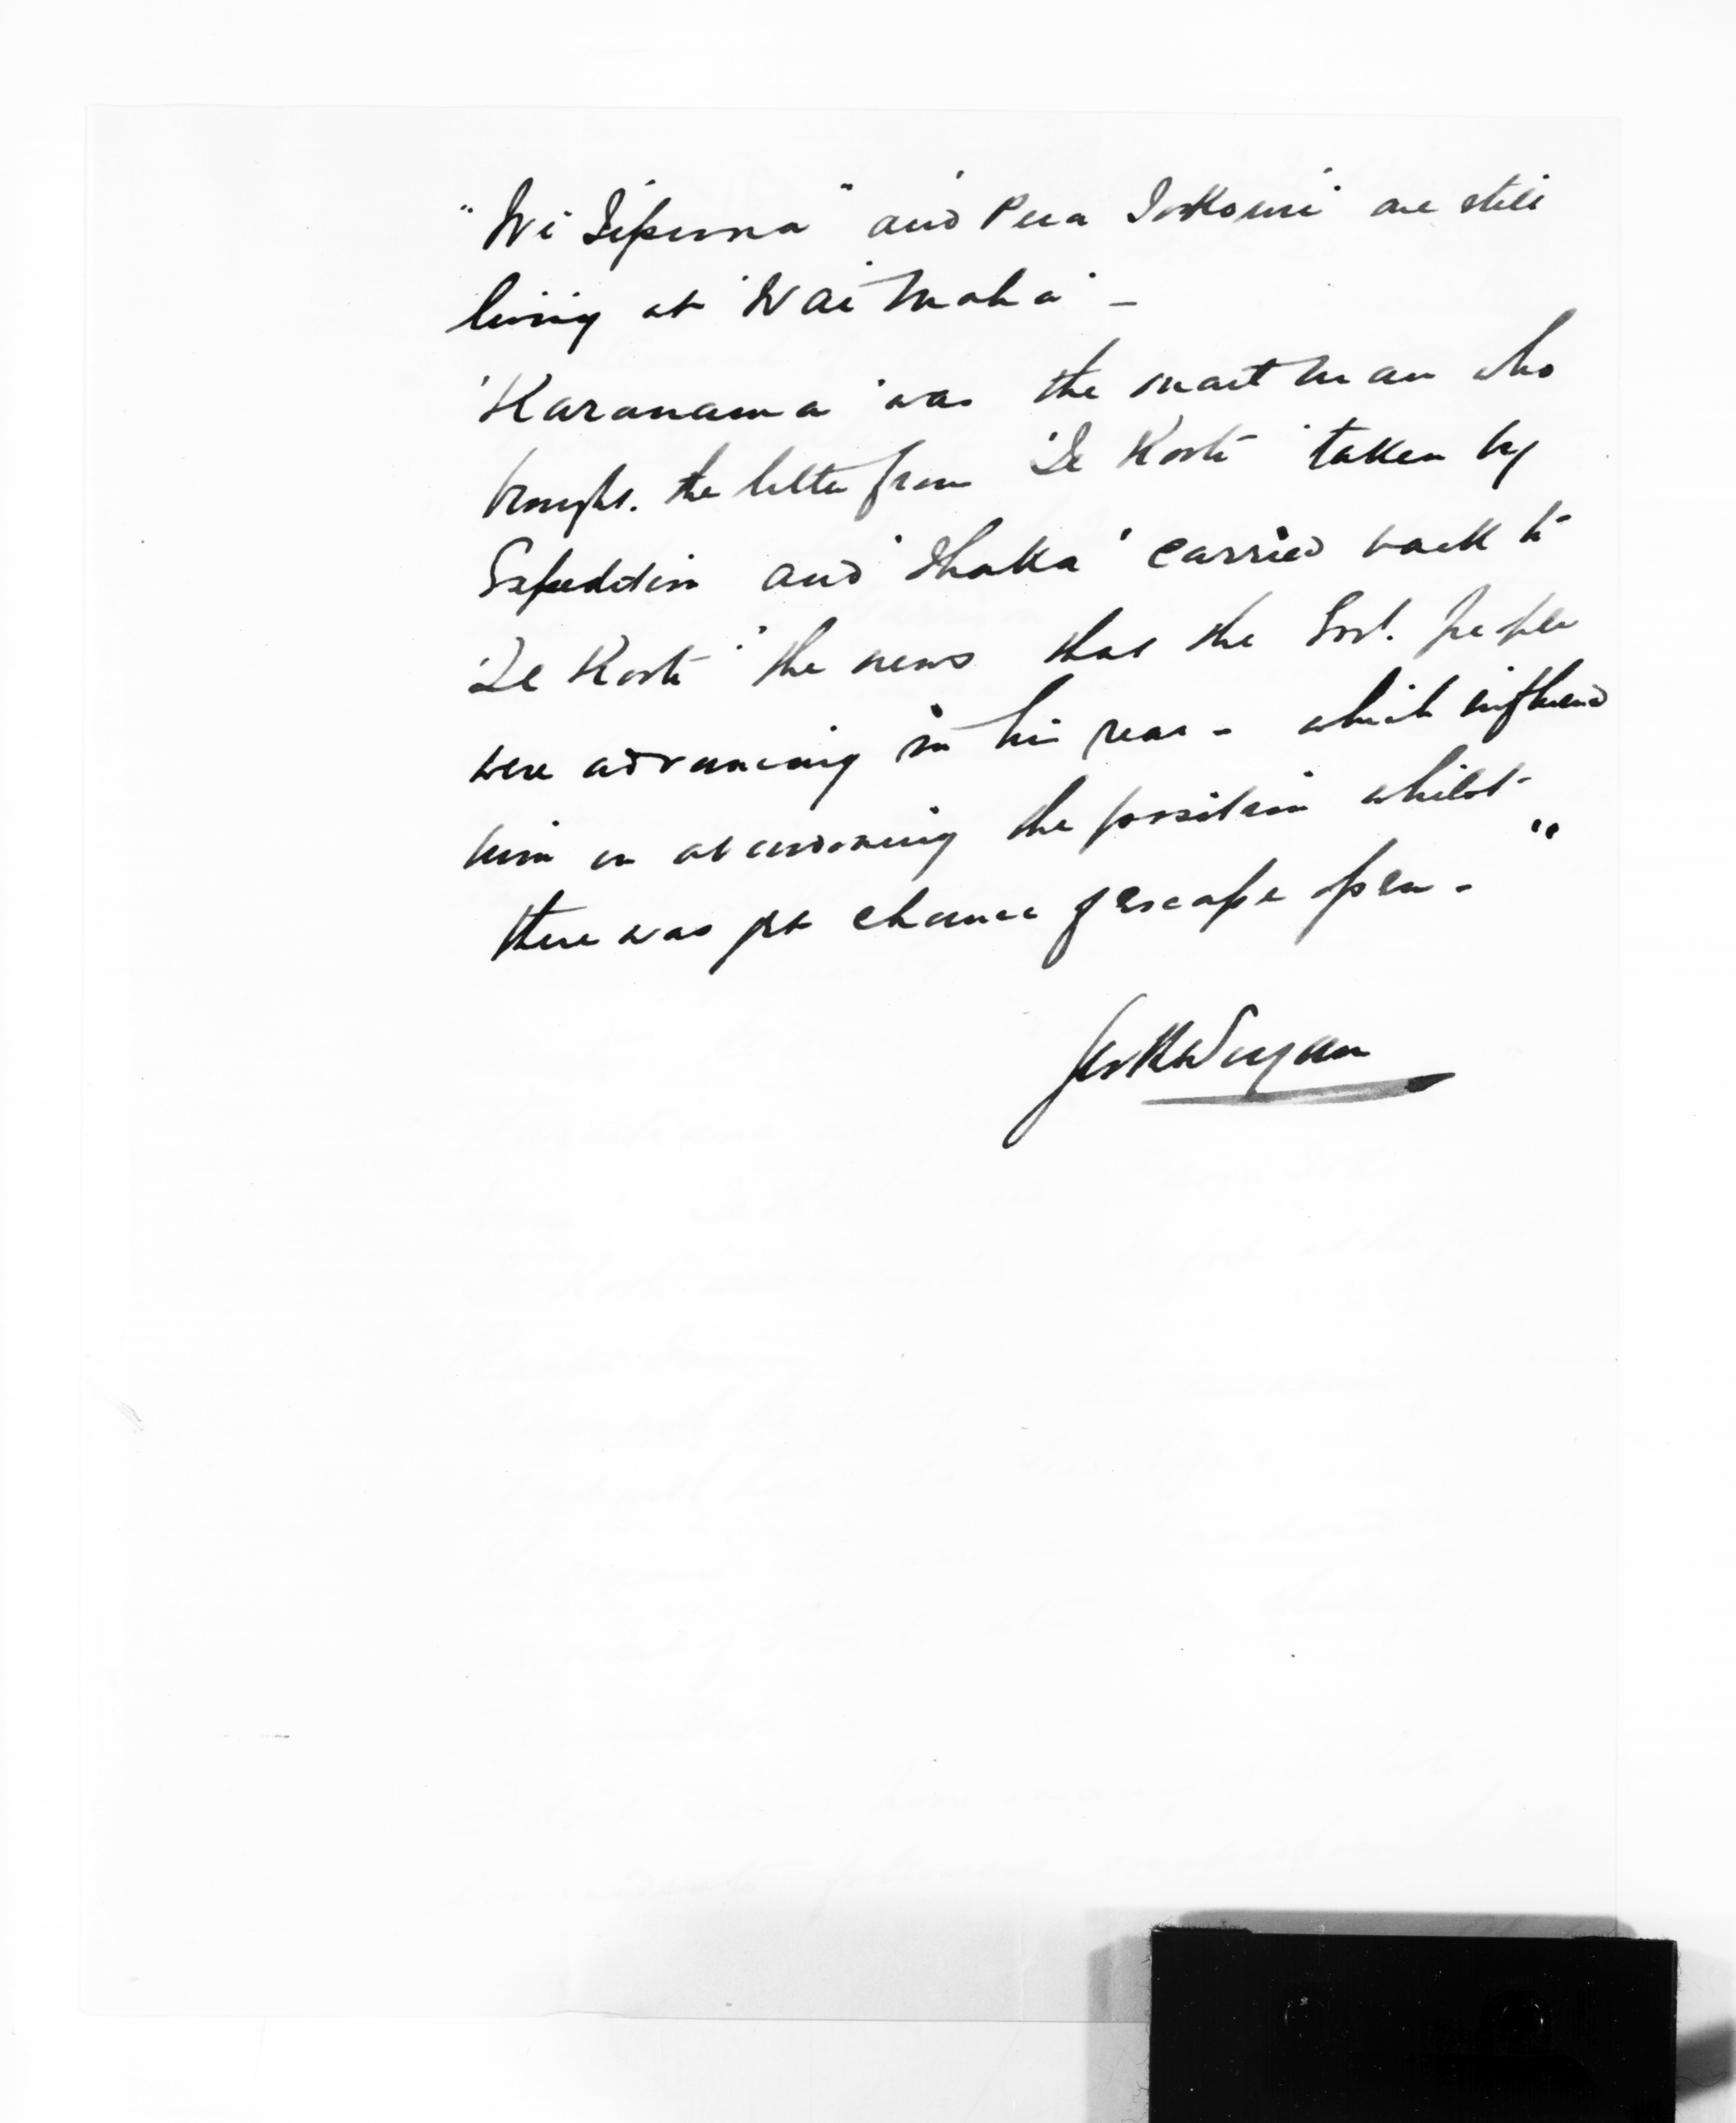 "Wi Tipuna" and 'Pera are still
living at 'Wai Maha' -
'Karanama' was the smart man who
brought. the letter from 'Te Kooti' taken by
Expedition and 'Ihaka' carried back to
'Te Kooti' the news that the Govt. people
were advancing in his rear - which influenced
him in abandoning the position whilst
there was yet chance of escape open - "